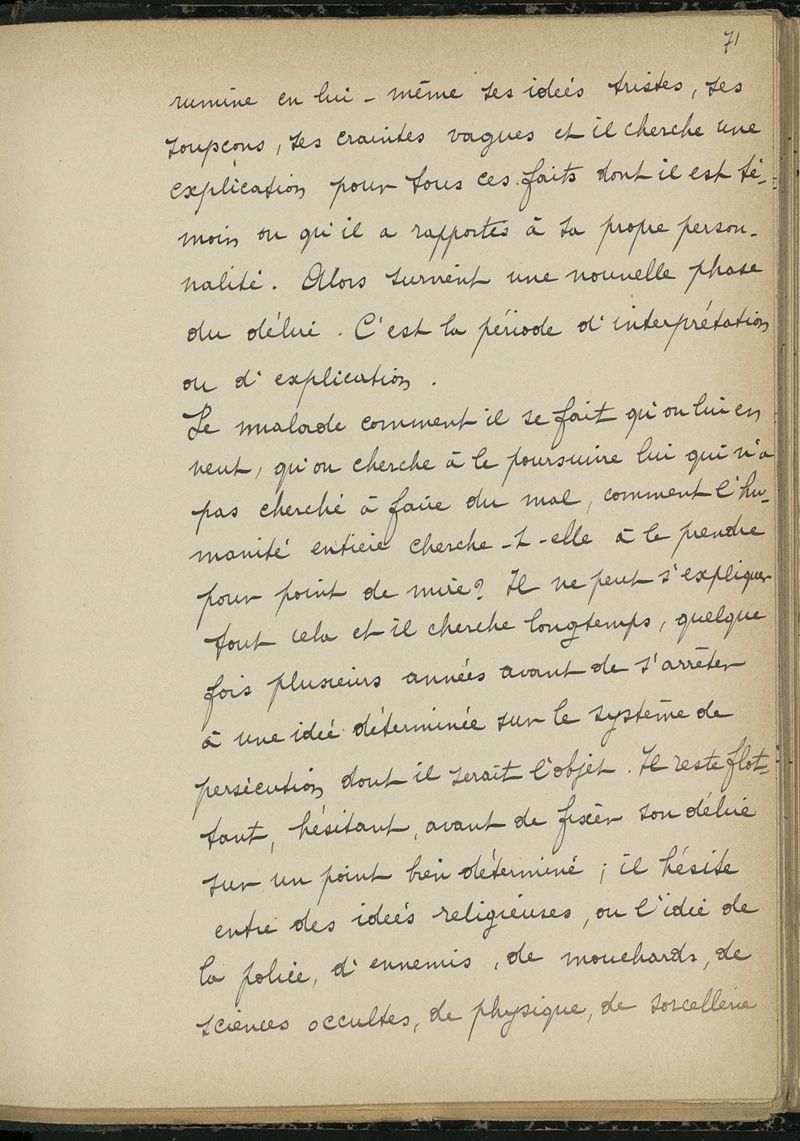 71
rumine en lui-même ses idées tristes, ses
soupçons, ses craintes vagues et il cherche une
explication pour tous ces faits dont il est té-
moin ou qu'il a rapportés à sa propre person-
nalité. Alors survient une nouvelle phase
du délire. C'est la période d'interprétation
ou d'explication.
Le malade comment il se fait qu'on lui en
veut, qu'on cherche à le poursuivre lui qui n'a
pas cherché à faire du mal, comment l'hu-
manité entière cherche-t-elle à le prendre
pour point de mire? Il ne peut s'expliquer
tout cela et il cherche longtemps, quelque
fois plusieurs années avant de s'arrêter
à une idée déterminée sur le système de
persécution dont il serait l'objet. Il reste flot-
tant, hésitant, avant de fixer son délire
sur un point bien déterminé; il hésite
entre des idées religieuses, ou l'idée de
la police, d'ennemis, de mouchards, de
sciences occultes, de physique, de sorcellerie